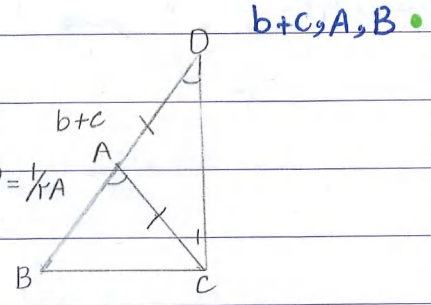 b+c, A, B
D
1
b+c
A
= 1/۲A
1
B
C